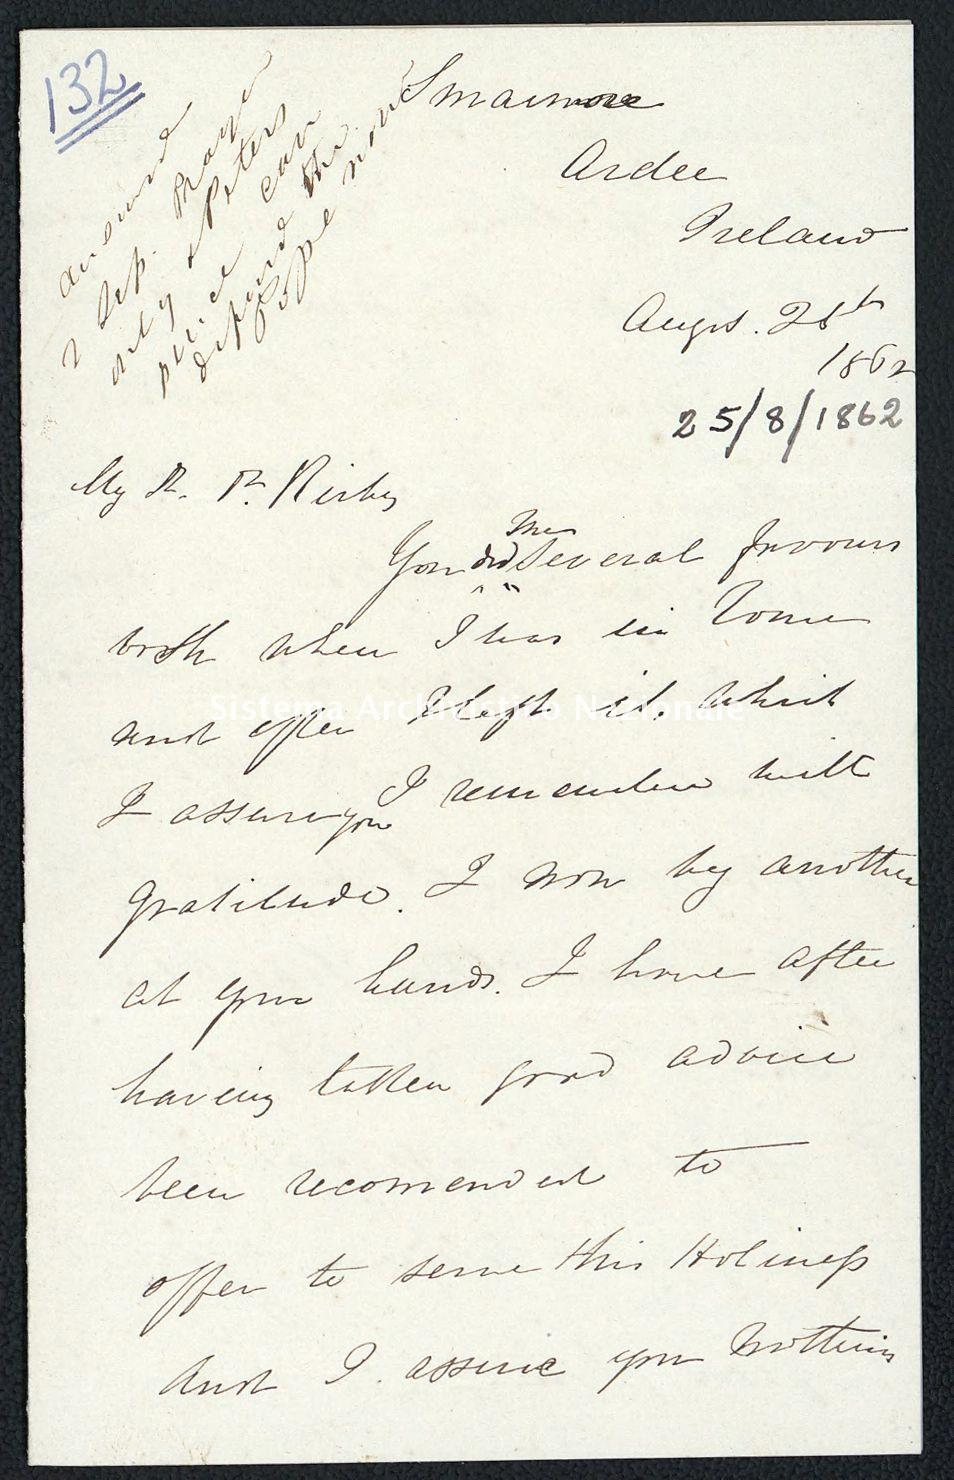 132
answered
2 Sep. Prayer
only St Peters
pence can
depend the
Pope now
Smarmore
Ardee
Ireland
Augst. 25th
1862
25/8/1862
My D. Dr. Kirby
You did me several favours
both when I was in Rome
and after I left it. Which
I assure you I remember with
gratitude. I now beg another
at your hands. I have after
having taken good advice
been recomended to
offer to serve this Holiness
and I assure you nothing
Sistema Archivistico Nazionale